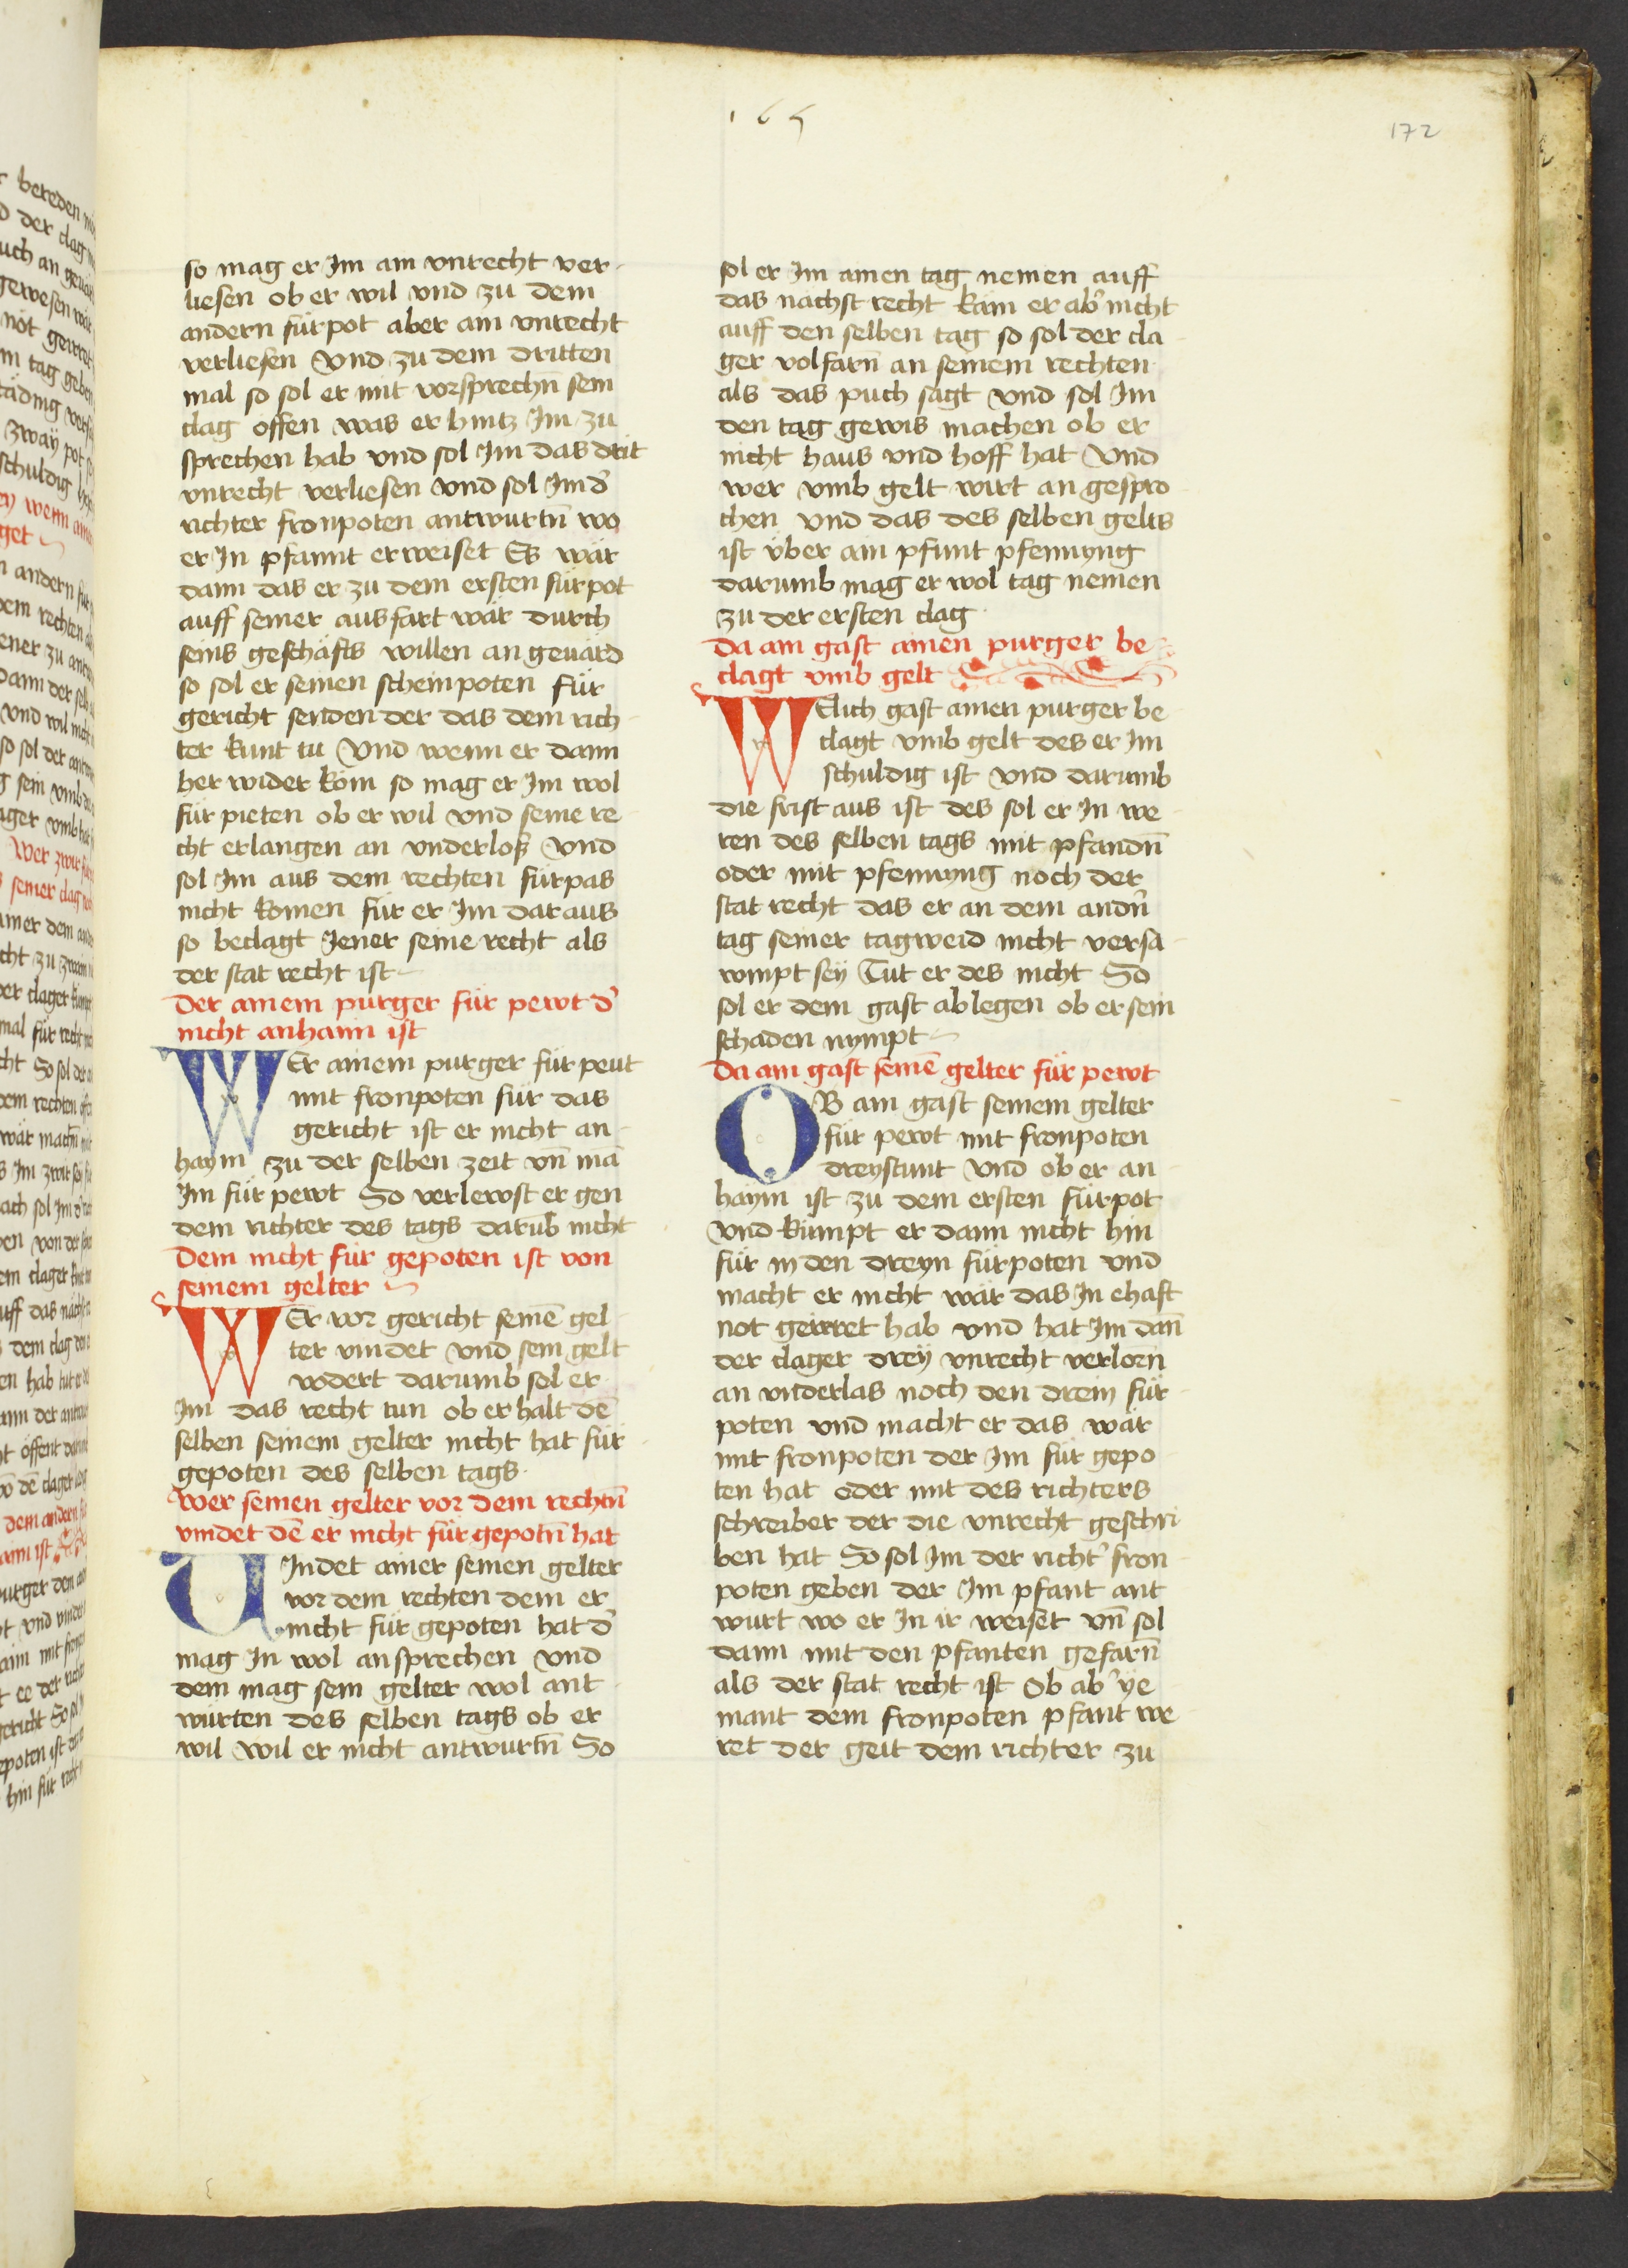 165
172
so mag er Im ain vnrecht ver-
liesen ob er wil vnd zu dem
andern fürpot aber ain vnrecht
verliesen Vnd zu dem dritten
mal so sol er mit vorsprechn̄ sein
clag offen was er hintz Im zu
sprechen hab vnd sol Im das drit
vnrecht verliesen Vnd sol Im d'
richter fronpoten antwurtn̄ wo
er In pfannt erweiset Es wär
dann das er zu dem ersten fürpot
auff seiner ausfart wär durch
seins geschäfts willen an geuärd
so sol er seinen scheinpoten für
gericht senden der das dem rich-
ter kunt tu Vnd wenn er dann
her wider kom so mag er Im wol
für pieten ob er wil vnd seine re-
cht erlangen an vnderlos Vnd
sol Im aus dem rechten fürpas
nicht komen für er Im dar aus
so beclagt Jener seine recht als
der stat recht ist
Der ainem purger für pewt d'
nicht anhaim ist
WEr ainem purger für peut
mit fronpoten für das
gericht ist er nicht an-
haym zu der selben zeit vn̄ mā
Im für pewt So verlewst er gen
dem richter des tags darūb nicht
Dem nicht für gepoten ist von
seinem gelter
WEr vor gericht seinē gel-
ter vindet vnd sein gelt
vodert darumb sol er
Im das recht tun ob er halt dē
selben seinem gelter nicht hat für
gepoten des selben tags
Wer seinen gelter vor dem rechtn̄
vindet dē er nicht für gepotn̄ hat
VIndet ainer seinen gelter
vor dem rechten dem er
nicht für gepoten hat d'
mag In wol ansprechen vnd
dem mag sein gelter wol ant-
wurten des selben tags ob er
wil wil er nicht antwurtn̄ So
sol er Im ainen tag nemen auff
das nächst recht käm er ab' nicht
auff den selben tag so sol der cla-
ger volfarn̄ an seinem rechten
als das puch sagt vnd sol Im
den tag gewis machen ob er
nicht haus vnd hoff hat Vnd
wer vmb gelt wirt an gespro-
chen vnd das des selben gelts
ist über ain pfunt pfennyng
darumb mag er wol tag nemen
zu der ersten clag
Da ain gast ainen purger be-
clagt vmb gelt
WElich gast ainen purger be-
clagt vmb gelt des er Im
schuldig ist vnd darumb
die frist aus ist des sol er In we-
ren des selben tags mit pfandn̄
oder mit pfennyng noch der
stat recht das er an dem andn̄
tag seiner tagweid nicht versa-
wmpt sey Tut er des nicht So
sol er dem gast ablegen ob er sein
schaden nympt
Da ain gast seinē gelter für pewt
OB ain gast seinem gelter
für pewt mit fronpoten
dreystunt Vnd ob er an-
haym ist zu dem ersten fürpot
vnd kumpt er dann nicht hin
für in den dreyn fürpoten vnd
macht er nicht wär das In ehaft
not geirret hab vnd hat Im dan̄
der clager drey vnrecht verlorn
an vnderlas noch den drein für-
poten vnd macht er das wär
mit fronpoten der Im für gepo-
ten hat oder mit des richters
schreiber der die vnrecht geschri-
ben hat So sol Im der richt' fron-
poten geben der Im pfant ant-
wurt wo er In ir weiset vn̄ sol
dann mit den pfanten gefarn̄
als der stat recht ist Ob ab' ye-
mant dem fronpoten pfant we-
ret der geit dem richter zu